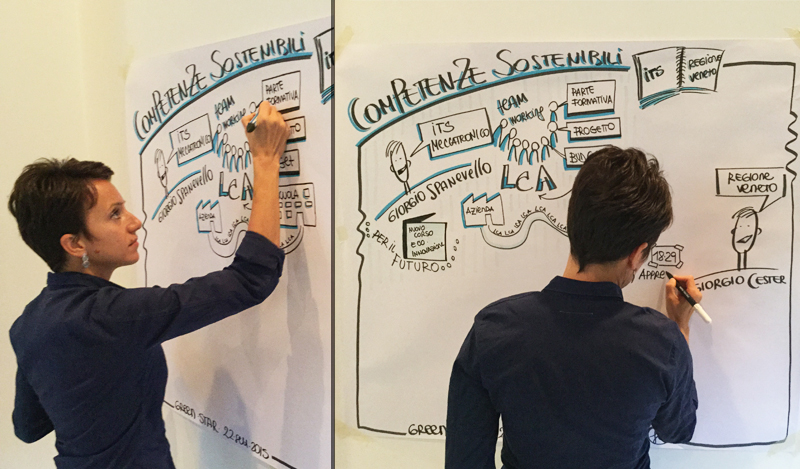 COMPETENZE SOSTENIBILI
ITS
MECCATRONICO
TEAM
WORKING
PARTE
FORMATIVA
GIORGIO SPANEVELLO
LCA
AZIENDA
LCA LCA LCA LCA
GREEN STAR
COMPETENZE SOSTENIBILI
ITS
REGIONE
VENETO
ITS
MECCATRONICO
TEAM
WORKING
PARTE
FORMATIVA
PROGETTO
GIORGIO SPANEVELLO
LCA
REGIONE
VENETO
AZIENDA
LCA LCA LCA LCA LCA
NUOVO
CORSO
ECO
INNOVAZIONE
PER IL
FUTURO
18-29
APPRE
GIORGIO CESTER
GREEN